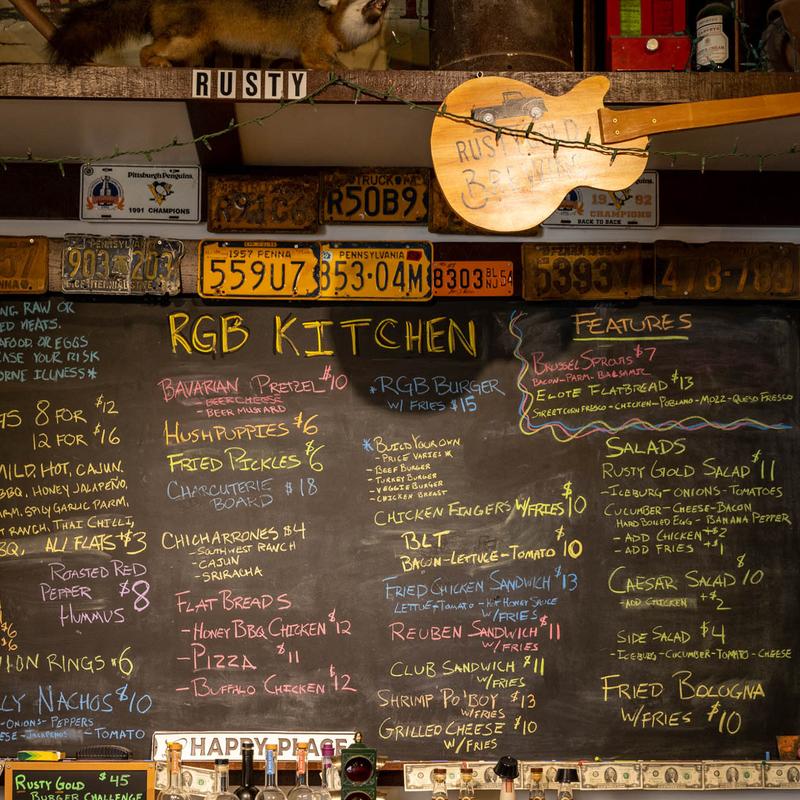 RUSTY
Pittsburgh Penguins
1991 CHAMPIONS
TRUCK
R50B9
RUSTY GOLD
19 92
CHAMPIONS
BACK TO BACK
57
PENNSYLVANIA
903 203
1957 PENNA
559U7
PENNSYLVANIA
853·04M
8303
5393
478-789
NG RAW OR
ED MEATS.
AFOOD OR EGGS
EASE YOUR RISK
ORNE ILLNESS*
RGB KITCHEN
FEATURES
BRUSSEL SPROUTS $7
BACON-PARM-BALSAMIC
ELOTE FLATBREAD $13
STREET CORN FRESCO-CHICKEN-POBLANO-MOZZ-QUESO FRESCO
8 FOR $12
12 FOR $16
MILD, HOT, CAJUN,
BBQ, HONEY JALAPEÑO,
PARM, SPICY GARLIC PARM,
RANCH, THAI CHILLI,
BBQ, ALL FLATS +$3
ROASTED RED
PEPPER $8
HUMMUS
$6
$6
ON RINGS $6
LY NACHOS $10
-ONIONS-PEPPERS
-JALAPENOS-TOMATO
BAVARIAN PRETZEL $10
-BEER CHEESE
-BEER MUSTARD
HUSHPUPPIES $6
FRIED PICKLES $6
CHARCUTERIE
BOARD $18
CHICHARRONES $4
-SOUTHWEST RANCH
-CAJUN
-SRIRACHA
FLAT BREADS
-HONEY BBQ CHICKEN $12
-PIZZA $11
-BUFFALO CHICKEN $12
*RGB BURGER
W/ FRIES $15
*BUILD YOUR OWN
-PRICE VARIES*
-BEEF BURGER
-TURKEY BURGER
-VEGGIE BURGER
-CHICKEN BREAST
CHICKEN FINGERS W/FRIES $10
BLT
BACON-LETTUCE-TOMATO $10
FRIED CHICKEN SANDWICH $13
LETTUCE-TOMATO-HOT HONEY SAUCE
W/FRIES
REUBEN SANDWICH $11
W/FRIES
CLUB SANDWICH $11
W/FRIES
SHRIMP PO'BOY $13
W/FRIES
GRILLED CHEESE $10
W/ FRIES
SALADS
RUSTY GOLD SALAD $11
-ICEBURG-ONIONS-TOMATOES
CUCUMBER-CHEESE-BACON
HARD BOILED EGG-BANANA PEPPER
-ADD CHICKEN +$2
-ADD FRIES +$1
CAESAR SALAD $10
-ADD CHICKEN +$2
SIDE SALAD $4
-ICEBURG-CUCUMBER-TOMATO-CHEESE
FRIED BOLOGNA
W/FRIES $10
HAPPY PLACE
RUSTY GOLD $45
BURGER CHALLENGE